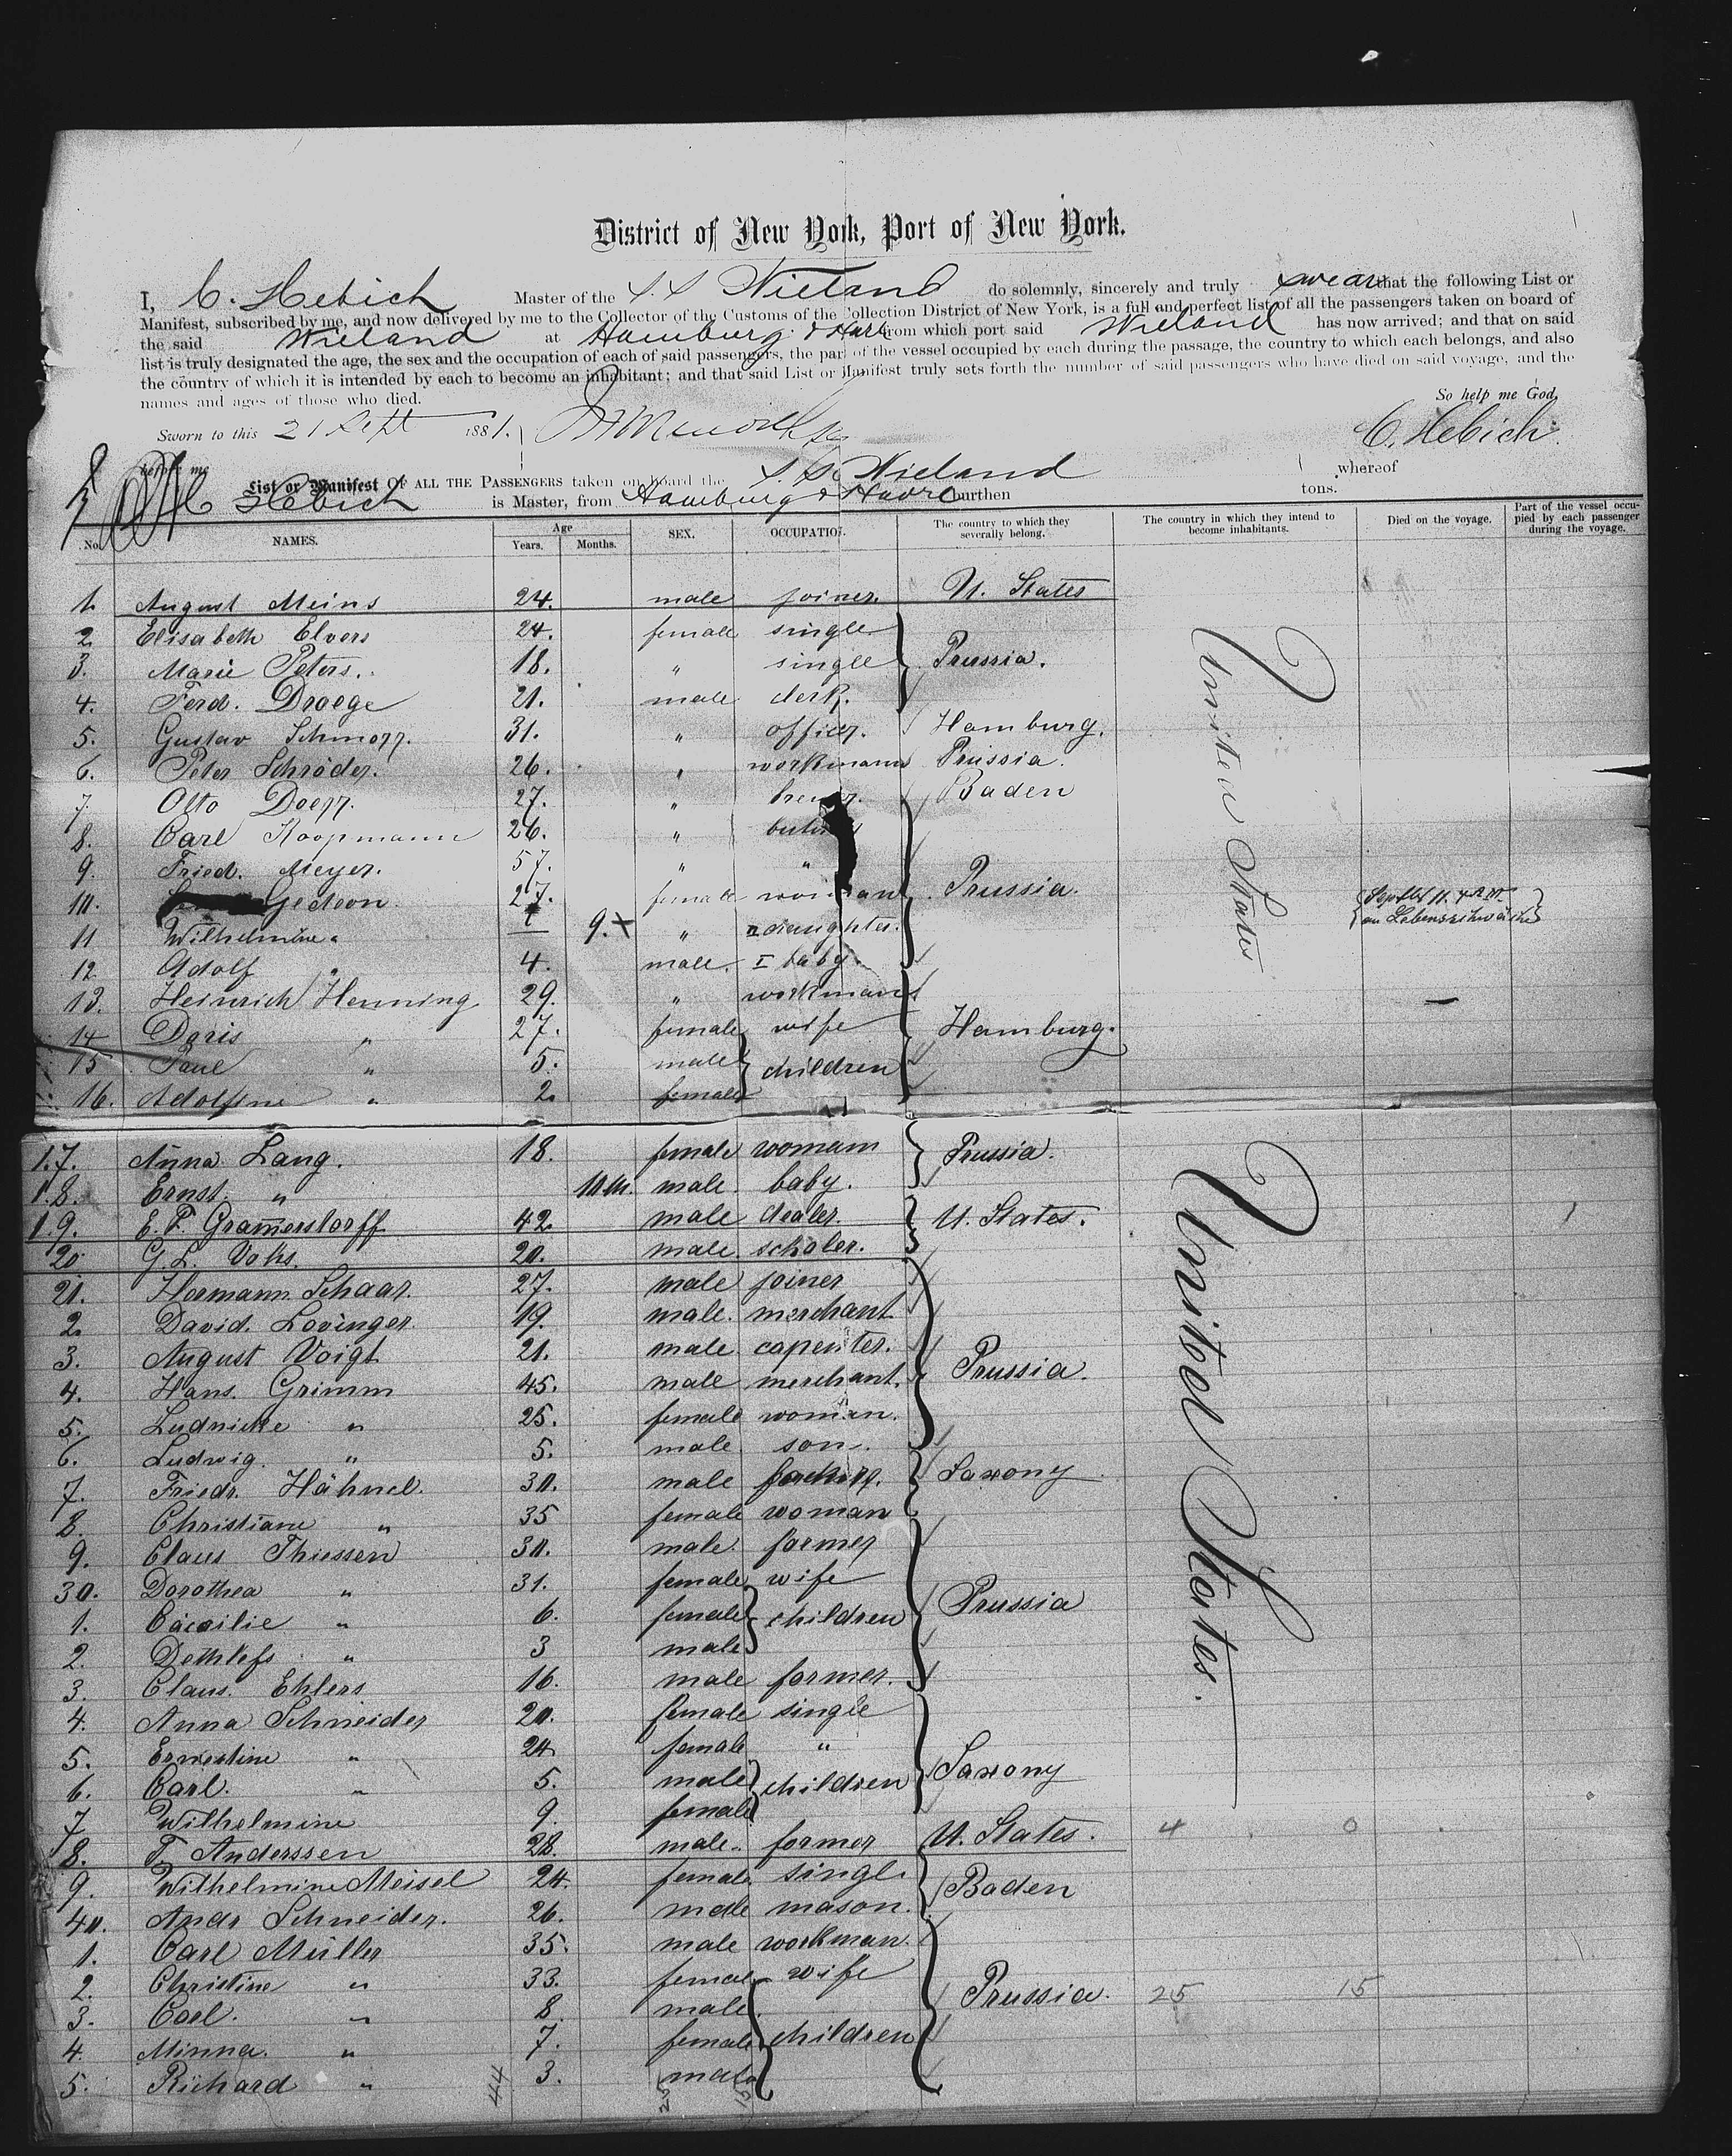 District of New York, Port of New York.
I, C. Hebich Master of the S. S. Wieland do solemnly, sincerely and truly swear that the following List or
Manifest, subscribed by me, and now delivered by me to the Collector of the Customs of the Collection District of New York, is a full and perfect list of all the passengers taken on board of
the said Wieland at Hamburg & Havre from which port said Wieland has now arrived; and that on said
list is truly designated the age, the sex and the occupation of each of said passengers, the part of the vessel occupied by each during the passage, the country to which each belongs, and also
the country of which it is intended by each to become an inhabitant; and that said List or Manifest truly sets forth the number of said passengers who have died on said voyage, and the
names and ages of those who died. So help me God,
Sworn to this 21 Sept 1881. C. Hebich.
before me
List or Manifest OF ALL THE PASSENGERS taken on board the S. S. Wieland whereof
C Hebich is Master, from Hamburg & Havre burthen tons.
No. NAMES. Age Years. Months. SEX. OCCUPATION. The country to which they severally belong. The country in which they intend to become inhabitants. Died on the voyage. Part of the vessel occupied by each passenger during the voyage.
1. August Meins 24. male joiner. U. States
2 Elisabeth Elvers 24. female single
3. Marie Peters. 18. " single Prussia.
4. Ferd. Droege 21. male clerk.
5. Gustav Schmopp. 31. " officer. Hamburg.
6. Peter Schröder. 26. " workmann Prussia.
7. Otto Doepp. 27. " Baden
8. Carl Koopmann 26. "
9. Fried. Meyer. 57. " "
10. Gedeon. 27. female woman Prussia.
11 Wilhelmine " 9. " II daughter.
12. Adolf " 4. male. I baby.
13. Heinrich Henning 29. " workmann
14 Doris " 27. female wife Hamburg.
15 Paul " 5. male children
16. Adolfine " 2. female
United States
17. Anna Lang. 18. female womann Prussia.
18. Ernst. " 10 m. male. baby.
19. E. F. Gramerstorff 42. male dealer. U. States.
20 G. L. Vohs. 20. male. scholer.
21. Hermann Schaar. 27. male joiner
2. David. Lovinger. 19. male. merchant
3. August Voigt 21. male. capenter.
4. Hans. Grimm 45. male merchant. Prussia.
5. Ludwicke " 25. female woman.
6. Ludwig. " 5. male. son.
7. Friedr. Hähnel. 30. male Saxony
8. Christiane " 35 female woman
9. Claus Thiessen 30. male. former
30. Dorothea " 31. female wife
1. Cäcilie " 6. female children Prussia
2. Dethlefs " 3 male
3. Claus. Ehlers 16. male former.
4. Anna Schneider 20. female single
5. Ernestine " 24 female "
6. Carl. " 5. male children Saxony
7 Wilhelmine 9. female
8. F. Anderssen 28. male. former U. States. 4 0
9. Wilhelmine Meisel 24. female singl. Baden
40. Andr Schneider. 26. male mason.
1. Carl Müller 35. male workman.
2. Christine " 33. female wife
3. Carl. " 8. male. Prussia. 25 15
4. Minna. " 7. female children
5. Richard " 3. male
United States.
44